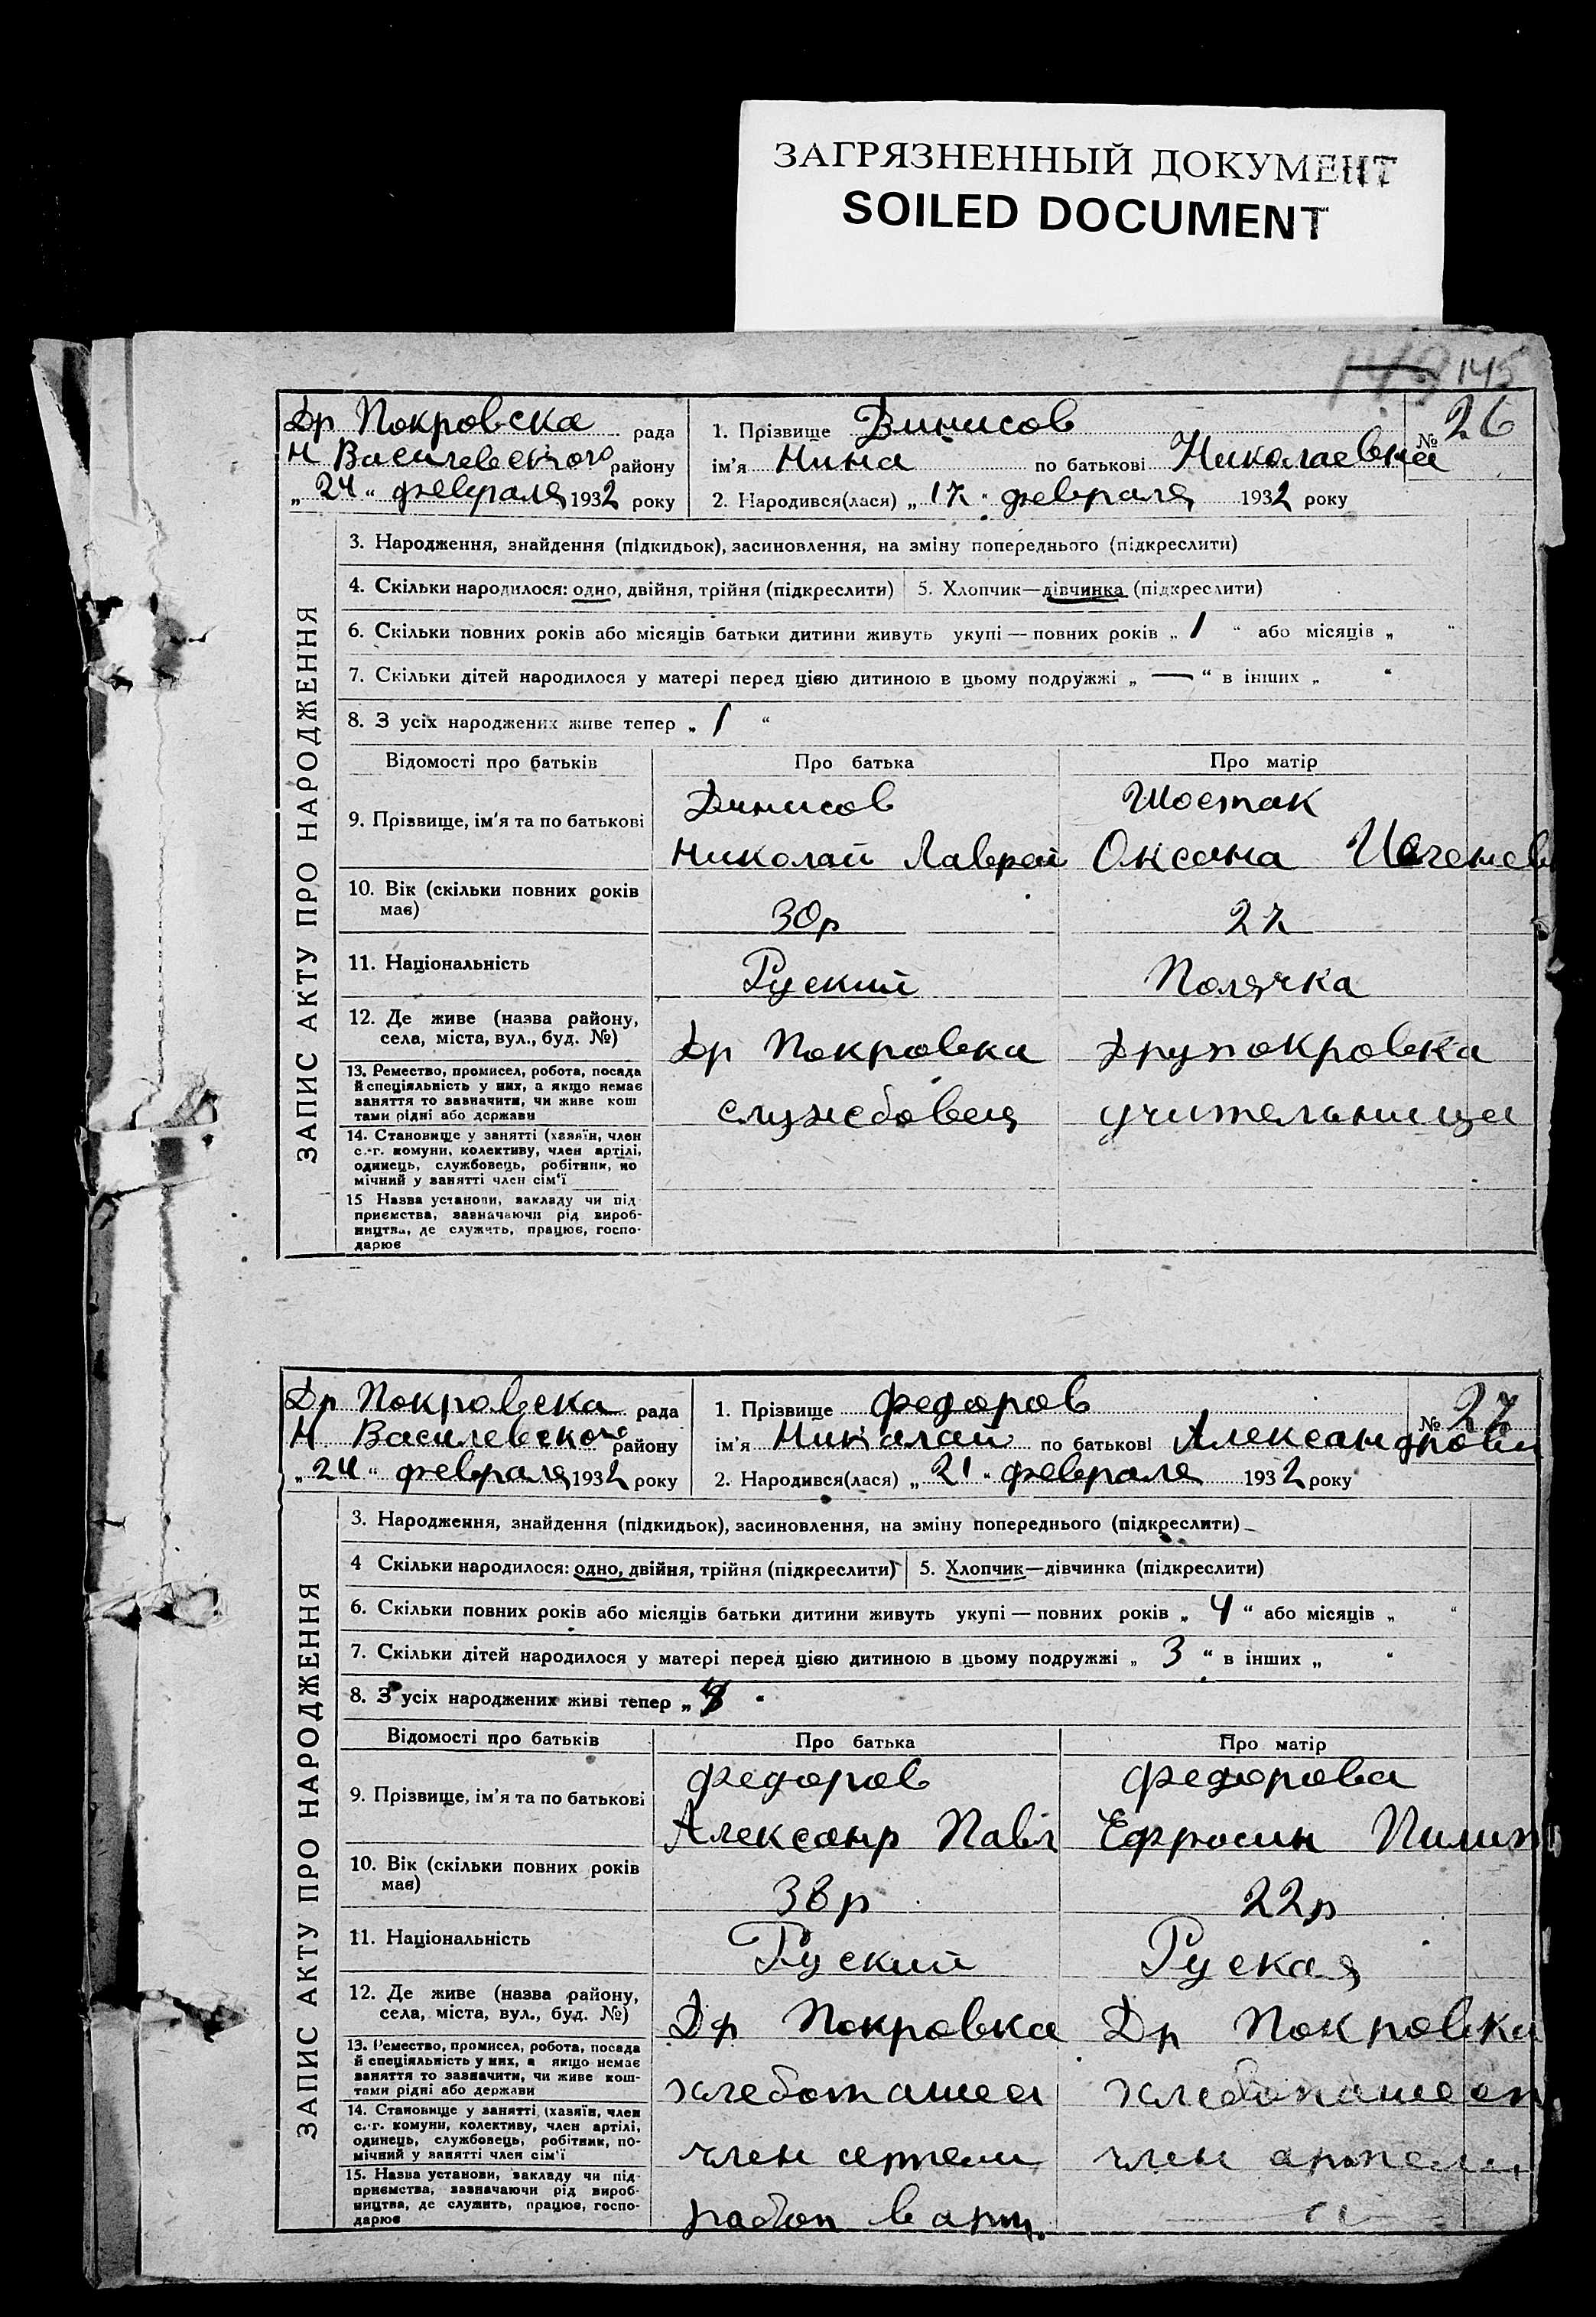 ЗАГРЯЗНЕННЫЙ ДОКУМЕНТ
SOILED DOCUMENT
145
Др Покровска рада
Н Василевского району
„24“ февраля 1932 року
1. Прізвище Динисов № 26
ім'я Нина по батькові Николаевна
2. Народився(лася) „17“ февраля 1932 року
ЗАПИС АКТУ ПРО НАРОДЖЕННЯ
3. Народження, знайдення (підкидьок), засиновлення, на зміну попереднього (підкреслити)
4. Скільки народилося: одно, двійня, трійня (підкреслити) 5. Хлопчик—дівчинка (підкреслити)
6. Скільки повних років або місяців батьки дитини живуть укупі — повних років „1“ або місяців „ “
7. Скільки дітей народилося у матері перед цією дитиною в цьому подружжі „—“ в інших „ “
8. З усіх народжених живе тепер „1“
Відомості про батьків Про батька Про матір
9. Прізвище, ім'я та по батькові
Динисов Шостак
Николай Лаврен Оксана
10. Вік (скільки повних років має)
30р 27
11. Національність
Руский Полячка
12. Де живе (назва району, села, міста, вул., буд. №)
Др Покровка Друпокровка
13. Ремество, промисел, робота, посада й спеціяльність у них, а якщо немає заняття то зазначити, чи живе кош тами рідні або держави
службовец учительница
14. Становище у занятті (хазяїн, член с.-г. комуни, колективу, член артілі, одинець, службовець, робітник, по мічний у занятті член сім'ї
15 Назва установи, закладу чи під приємства, зазначаючи рід вироб- ництва, де служить, працює, госпо- дарює
Др Покровска рада
Н Василевского району
„24“ февраля 1932 року
1. Прізвище Федоров № 27
ім'я Николай по батькові Александрови
2. Народився(лася) „21“ февраля 1932 року
ЗАПИС АКТУ ПРО НАРОДЖЕННЯ
3. Народження, знайдення (підкидьок), засиновлення, на зміну попереднього (підкреслити)
4 Скільки народилося: одно, двійня, трійня (підкреслити) 5. Хлопчик—дівчинка (підкреслити)
6. Скільки повних років або місяців батьки дитини живуть укупі — повних років „4“ або місяців „ “
7. Скільки дітей народилося у матері перед цією дитиною в цьому подружжі „3“ в інших „ “
8. З усіх народжених живі тепер „ “
Відомості про батьків Про батька Про матір
9. Прізвище, ім'я та по батькові
Федоров Федорова
Александр Павл Ефросин Пилип
10. Вік (скільки повних років має)
38р 22р
11. Національність
Руский Руская
12. Де живе (назва району, села, міста, вул., буд. №)
Др Покровка Др Покровка
13. Ремество, промисел, робота, посада й спеціяльність у них, а якщо немає заняття то зазначити, чи живе кош- тами рідні або держави
хлебопашец хлебопашест
14. Становище у занятті (хазяїн, член с.-г. комуни, колективу, член артілі, одинець, службовець, робітник, по- мічний у занятті член сім'ї
член артели член артели
15. Назва установи, закладу чи під- приємства, зазначаючи рід вироб- ництва, де служить, працює, госпо- дарює
работ в арт.